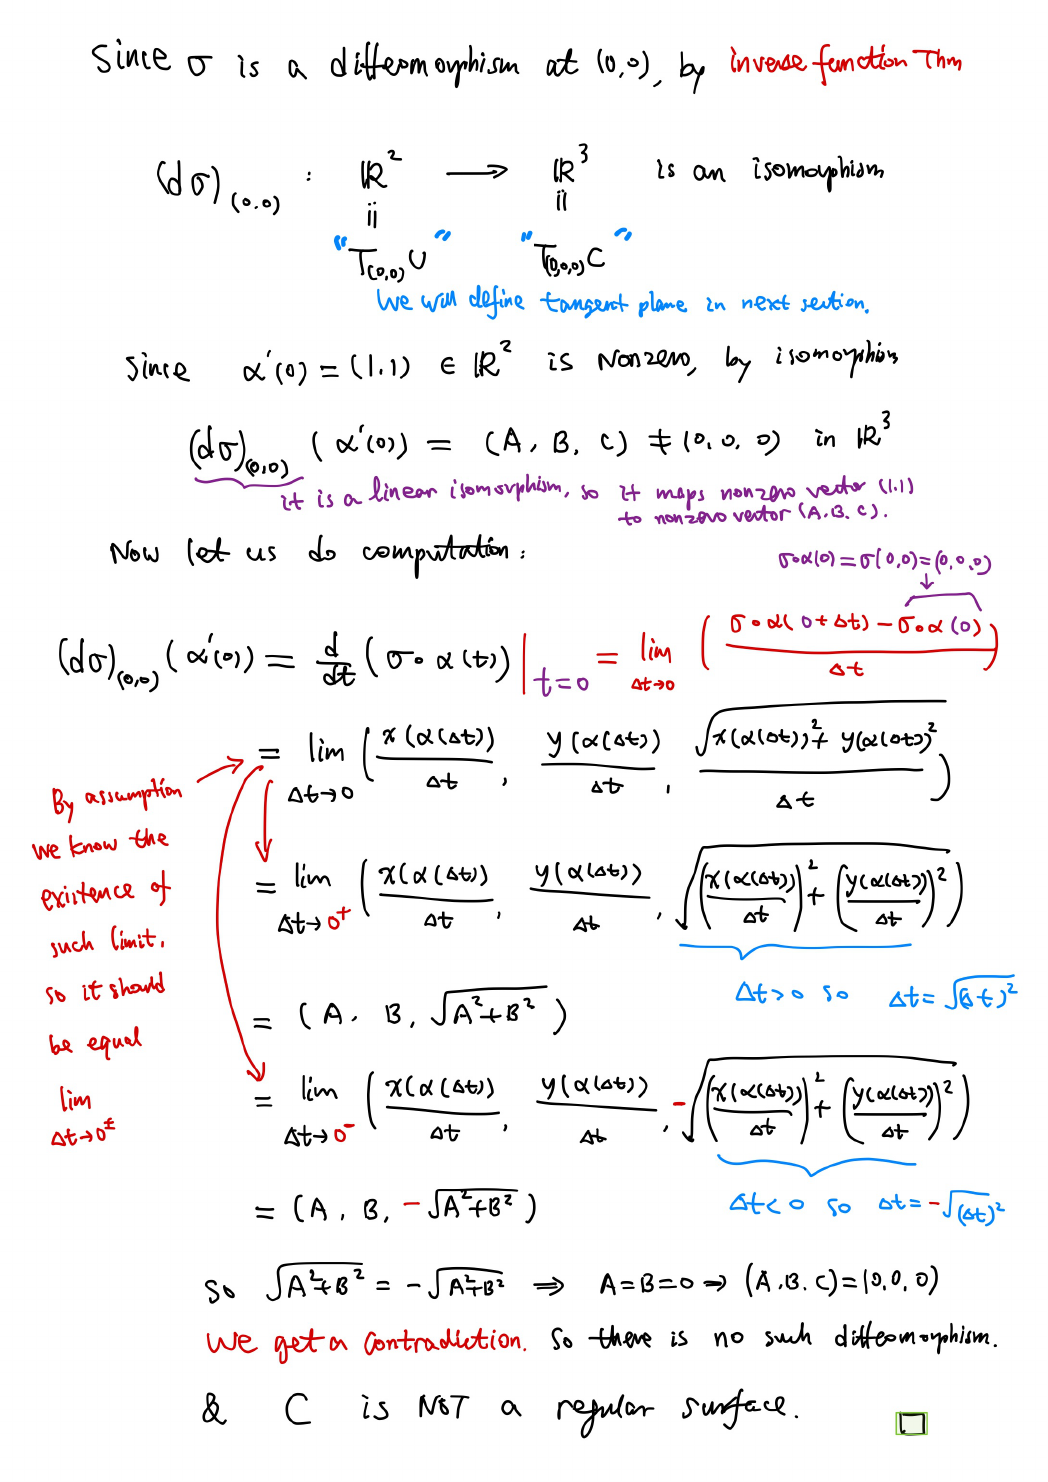 Since σ is a diffeomorphism at (0,0), by inverse function Thm
(dσ)_(0,0) : ℝ² ⟶ ℝ³ is an isomorphism
= =
"T_(0,0) U" "T_(0,0,0) C"
We will define tangent plane in next section.
Since α'(0) = (1,1) ∈ ℝ² is Nonzero, by isomorphism
(dσ)_(0,0) (α'(0) = (A, B, C) ≠ (0, 0, 0) in ℝ³
it is a linear isomorphism, so it maps nonzero vector (1,1)
to nonzero vector (A, B, C).
Now let us do computation:
σ∘α(0) = σ(0,0) = (0,0,0)
(dσ)_(0,0) (α'(0)) = d/dt (σ∘α(t)) |_{t=0} = lim_{Δt→0} ( (σ∘α(0+Δt) − σ∘α(0)) / Δt )
= lim_{Δt→0} ( x(α(Δt))/Δt, y(α(Δt))/Δt, √(x(α(Δt))² + y(α(Δt))²) / Δt )
By assumption
we know the
existence of
such limit,
so it should
be equal
lim_{Δt→0^±}
= lim_{Δt→0⁺} ( x(α(Δt))/Δt, y(α(Δt))/Δt, √( (x(α(Δt))/Δt)² + (y(α(Δt))/Δt)² ) )
Δt>0 so Δt = √(Δt)²
= (A, B, √(A²+B²))
= lim_{Δt→0⁻} ( x(α(Δt))/Δt, y(α(Δt))/Δt, −√( (x(α(Δt))/Δt)² + (y(α(Δt))/Δt)² ) )
Δt<0 so Δt = −√(Δt)²
= (A, B, −√(A²+B²))
So √(A²+B²) = −√(A²+B²) ⇒ A=B=0 ⇒ (A,B,C)=(0,0,0)
We get a contradiction. So there is no such diffeomorphism.
& C is NOT a regular surface. □